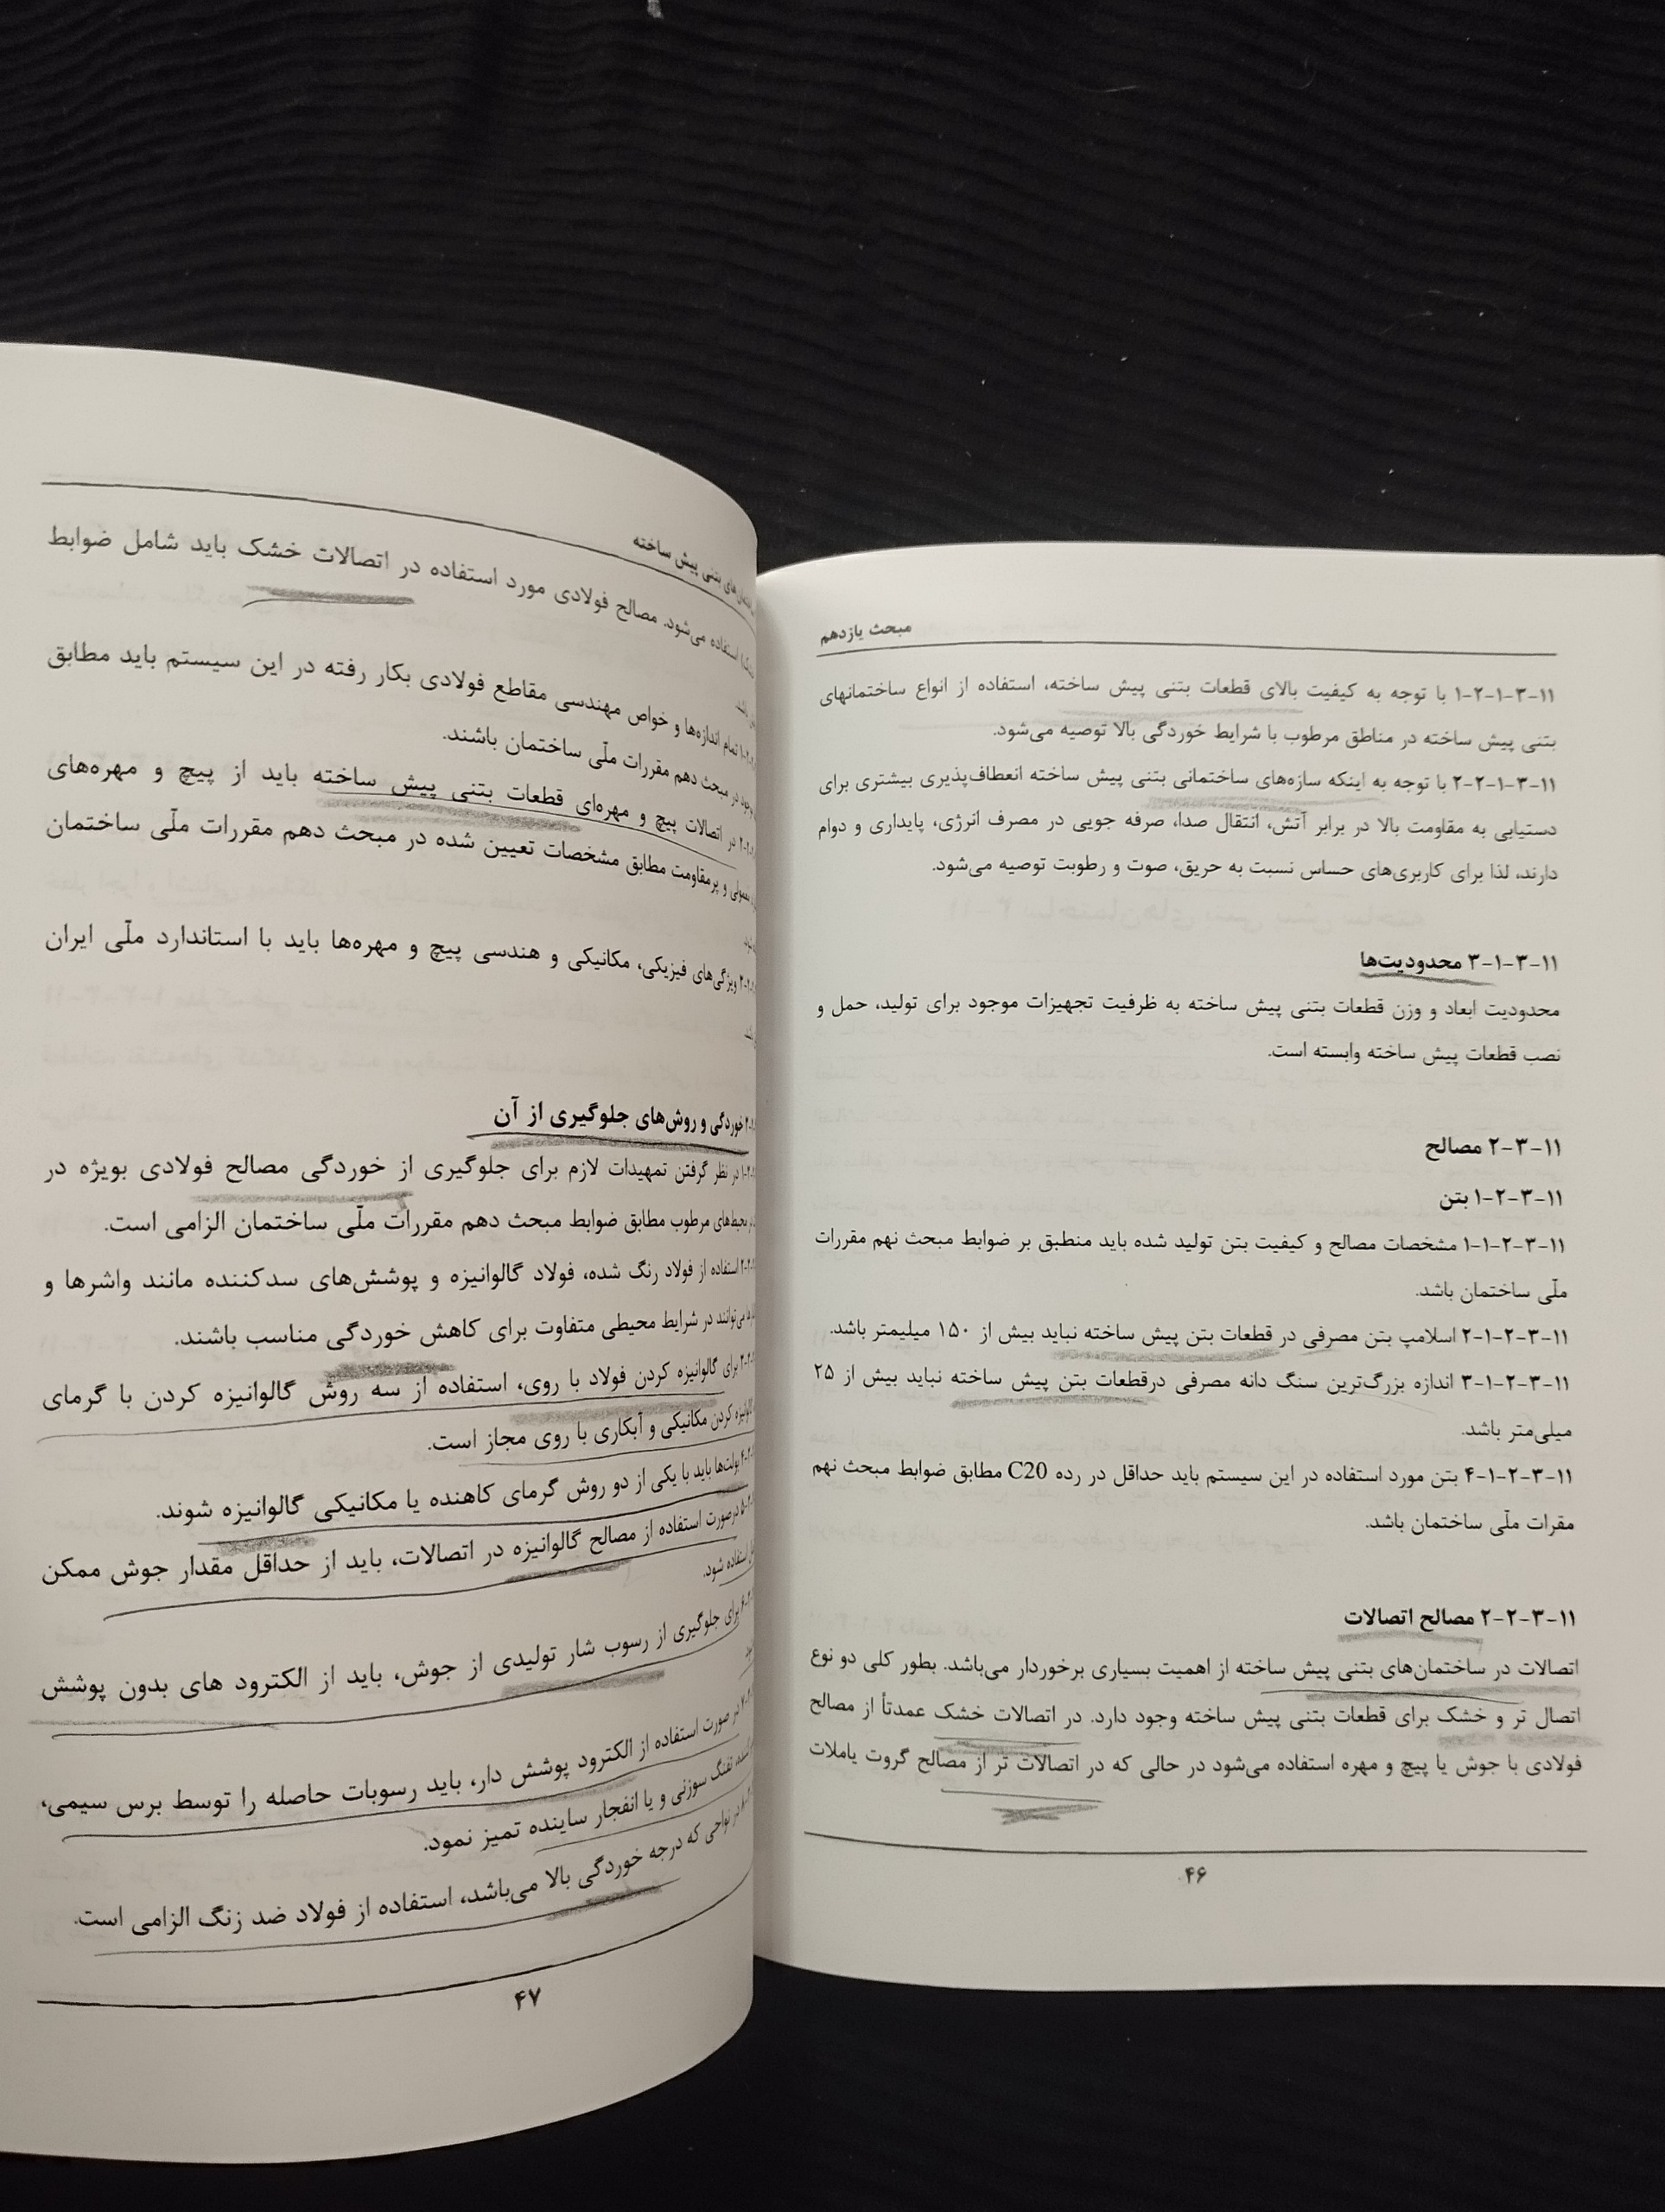 مبحث یازدهم
۱۱-۳-۱-۲-۱ با توجه به کیفیت بالای قطعات بتنی پیش ساخته، استفاده از انواع ساختمانهای
بتنی پیش ساخته در مناطق مرطوب با شرایط خوردگی بالا توصیه می‌شود.
۱۱-۳-۱-۲-۲ با توجه به اینکه سازه‌های ساختمانی بتنی پیش ساخته انعطاف‌پذیری بیشتری برای
دستیابی به مقاومت بالا در برابر آتش، انتقال صدا، صرفه جویی در مصرف انرژی، پایداری و دوام
دارند، لذا برای کاربری‌های حساس نسبت به حریق، صوت و رطوبت توصیه می‌شود.
۱۱-۳-۱-۳ محدودیت‌ها
محدودیت ابعاد و وزن قطعات بتنی پیش ساخته به ظرفیت تجهیزات موجود برای تولید، حمل و
نصب قطعات پیش ساخته وابسته است.
۱۱-۳-۲ مصالح
۱۱-۳-۲-۱ بتن
۱۱-۳-۲-۱-۱ مشخصات مصالح و کیفیت بتن تولید شده باید منطبق بر ضوابط مبحث نهم مقررات
ملّی ساختمان باشد.
۱۱-۳-۲-۱-۲ اسلامپ بتن مصرفی در قطعات بتن پیش ساخته نباید بیش از ۱۵۰ میلیمتر باشد.
۱۱-۳-۲-۱-۳ اندازه بزرگ‌ترین سنگ دانه مصرفی درقطعات بتن پیش ساخته نباید بیش از ۲۵
میلی‌متر باشد.
۱۱-۳-۲-۱-۴ بتن مورد استفاده در این سیستم باید حداقل در رده C20 مطابق ضوابط مبحث نهم
مقرات ملّی ساختمان باشد.
۱۱-۳-۲-۲ مصالح اتصالات
اتصالات در ساختمان‌های بتنی پیش ساخته از اهمیت بسیاری برخوردار می‌باشد. بطور کلی دو نوع
اتصال تر و خشک برای قطعات بتنی پیش ساخته وجود دارد. در اتصالات خشک عمدتاً از مصالح
فولادی با جوش یا پیچ و مهره استفاده می‌شود در حالی که در اتصالات تر از مصالح گروت یاملات
۴۶
بتنی پیش ساخته
استفاده می‌شود. مصالح فولادی مورد استفاده در اتصالات خشک باید شامل ضوابط
تمام اندازه‌ها و خواص مهندسی مقاطع فولادی بکار رفته در این سیستم باید مطابق
در مبحث دهم مقررات ملّی ساختمان باشند.
در اتصالات پیچ و مهره‌ای قطعات بتنی پیش ساخته باید از پیچ و مهره‌های
معمولی و پرمقاومت مطابق مشخصات تعیین شده در مبحث دهم مقررات ملّی ساختمان
ویژگی‌های فیزیکی، مکانیکی و هندسی پیچ و مهره‌ها باید با استاندارد ملّی ایران
خوردگی و روش‌های جلوگیری از آن
در نظر گرفتن تمهیدات لازم برای جلوگیری از خوردگی مصالح فولادی بویژه در
محیط‌های مرطوب مطابق ضوابط مبحث دهم مقررات ملّی ساختمان الزامی است.
استفاده از فولاد رنگ شده، فولاد گالوانیزه و پوشش‌های سدکننده مانند واشرها و
می‌توانند در شرایط محیطی متفاوت برای کاهش خوردگی مناسب باشند.
برای گالوانیزه کردن فولاد با روی، استفاده از سه روش گالوانیزه کردن با گرمای
کردن مکانیکی و آبکاری با روی مجاز است.
بولت‌ها باید با یکی از دو روش گرمای کاهنده یا مکانیکی گالوانیزه شوند.
درصورت استفاده از مصالح گالوانیزه در اتصالات، باید از حداقل مقدار جوش ممکن
استفاده شود.
برای جلوگیری از رسوب شار تولیدی از جوش، باید از الکترود های بدون پوشش
در صورت استفاده از الکترود پوشش دار، باید رسوبات حاصله را توسط برس سیمی،
تفنگ سوزنی و یا انفجار ساینده تمیز نمود.
در نواحی که درجه خوردگی بالا می‌باشد، استفاده از فولاد ضد زنگ الزامی است.
۴۷